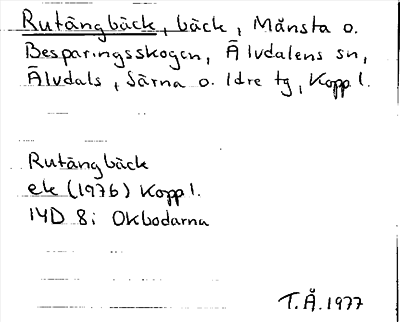 Rutängbäck, bäck, Månsta o.
Besparingsskogen, Älvdalens sn,
Älvdals, Särna o. Idre tg, Kopp l.
Rutängbäck
ek (1976) Kopp l.
14D 8i Okbodarna
T.Å. 1977